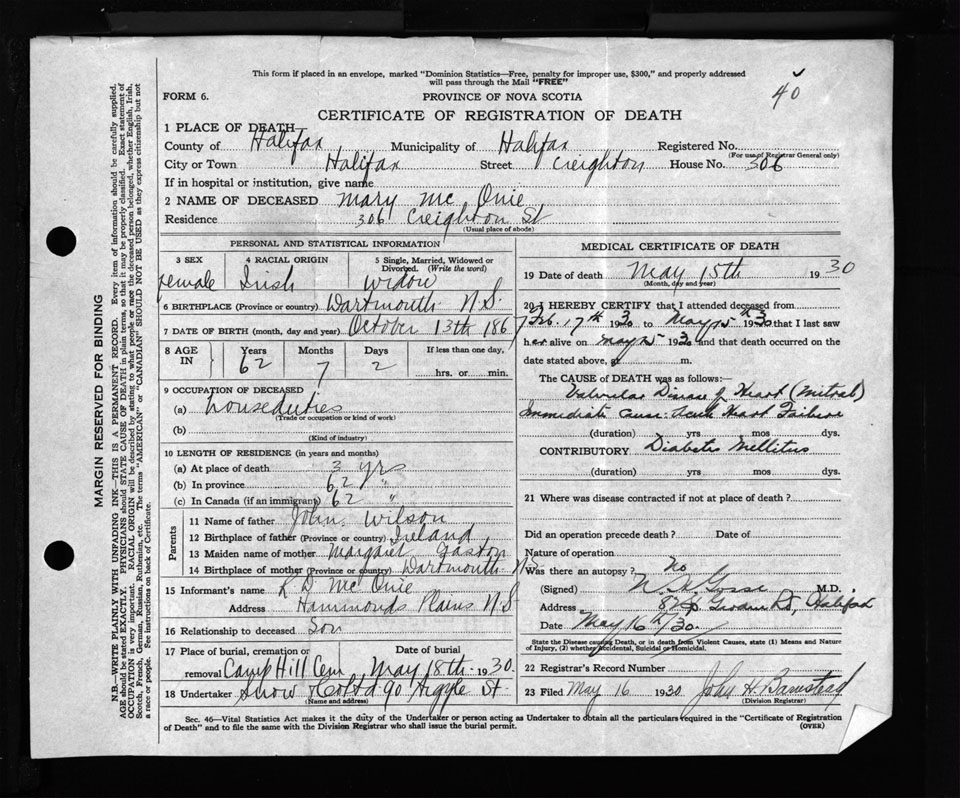 This form if placed in an envelope, marked "Dominion Statistics—Free, penalty for improper use, $300," and properly addressed
will pass through the Mail "FREE"
40
FORM 6.
PROVINCE OF NOVA SCOTIA
CERTIFICATE OF REGISTRATION OF DEATH
1 PLACE OF DEATH—
County of Halifax Municipality of Halifax Registered No.
(For use of Registrar General only)
City or Town Halifax Street Creighton House No. 306
If in hospital or institution, give name
2 NAME OF DECEASED Mary McOnie
Residence 306 Creighton St
(Usual place of abode)
PERSONAL AND STATISTICAL INFORMATION
3 SEX 4 RACIAL ORIGIN 5 Single, Married, Widowed or
Divorced. (Write the word)
female Irish Widow
6 BIRTHPLACE (Province or country) Dartmouth N.S.
7 DATE OF BIRTH (month, day and year) October 13th 1867
8 AGE IN Years Months Days If less than one day,
62 7 2 hrs. or min.
9 OCCUPATION OF DECEASED
(a) houseduties
(Trade or occupation or kind of work)
(b)
(Kind of industry)
10 LENGTH OF RESIDENCE (in years and months)
(a) At place of death 3 yrs
(b) In province 62 "
(c) In Canada (if an immigrant) 62 "
Parents
11 Name of father John Wilson
12 Birthplace of father (Province or country) Ireland
13 Maiden name of mother Margaret Gaston
14 Birthplace of mother (Province or country) Dartmouth N.S
15 Informant's name R D McOnie
Address Hammonds Plains N.S
16 Relationship to deceased Son
17 Place of burial, cremation or Date of burial
removal Camp Hill Cem May 18th 1930
18 Undertaker Snow & Co Ltd 90 Argyle St
(Name and address)
MEDICAL CERTIFICATE OF DEATH
19 Date of death May 15th 1930
(Month, day and year)
20 I HEREBY CERTIFY that I attended deceased from
Feb. 17th 1930 to May 15th 1930 that I last saw
her alive on May 15 1930 and that death occurred on the
date stated above, at m.
The CAUSE of DEATH was as follows:—
Valvular Disease of Heart (Mitral)
Immediate cause: Acute Heart Failure
(duration) yrs mos dys.
CONTRIBUTORY Diabetes Mellitus
(duration) yrs mos dys.
21 Where was disease contracted if not at place of death?
Did an operation precede death? Date of
Nature of operation
Was there an autopsy? No
(Signed) N. H. Gosse M.D.
Address Halifax
Date May 16th/30
State the Disease causing Death, or in death from Violent Causes, state (1) Means and Nature
of Injury, (2) whether Accidental, Suicidal or Homicidal.
22 Registrar's Record Number
23 Filed May 16 1930 John H. Barnstead
(Division Registrar)
Sec. 46—Vital Statistics Act makes it the duty of the Undertaker or person acting as Undertaker to obtain all the particulars required in the "Certificate of Registration
of Death" and to file the same with the Division Registrar who shall issue the burial permit.
(OVER)
MARGIN RESERVED FOR BINDING
N.B.—WRITE PLAINLY WITH UNFADING INK—THIS IS A PERMANENT RECORD. Every item of information should be carefully supplied.
AGE should be stated EXACTLY. PHYSICIANS should STATE CAUSE OF DEATH in plain terms, so that it may be properly classified. Exact statement of
OCCUPATION is very important. RACIAL ORIGIN will be described by stating to what people or race the deceased person belonged, whether English, Irish,
Scotch, French, German, Russian, Ruthenian, etc. The terms "AMERICAN" or "CANADIAN" SHOULD NOT BE USED as they express citizenship but not
a race or people. See instructions on back of Certificate.